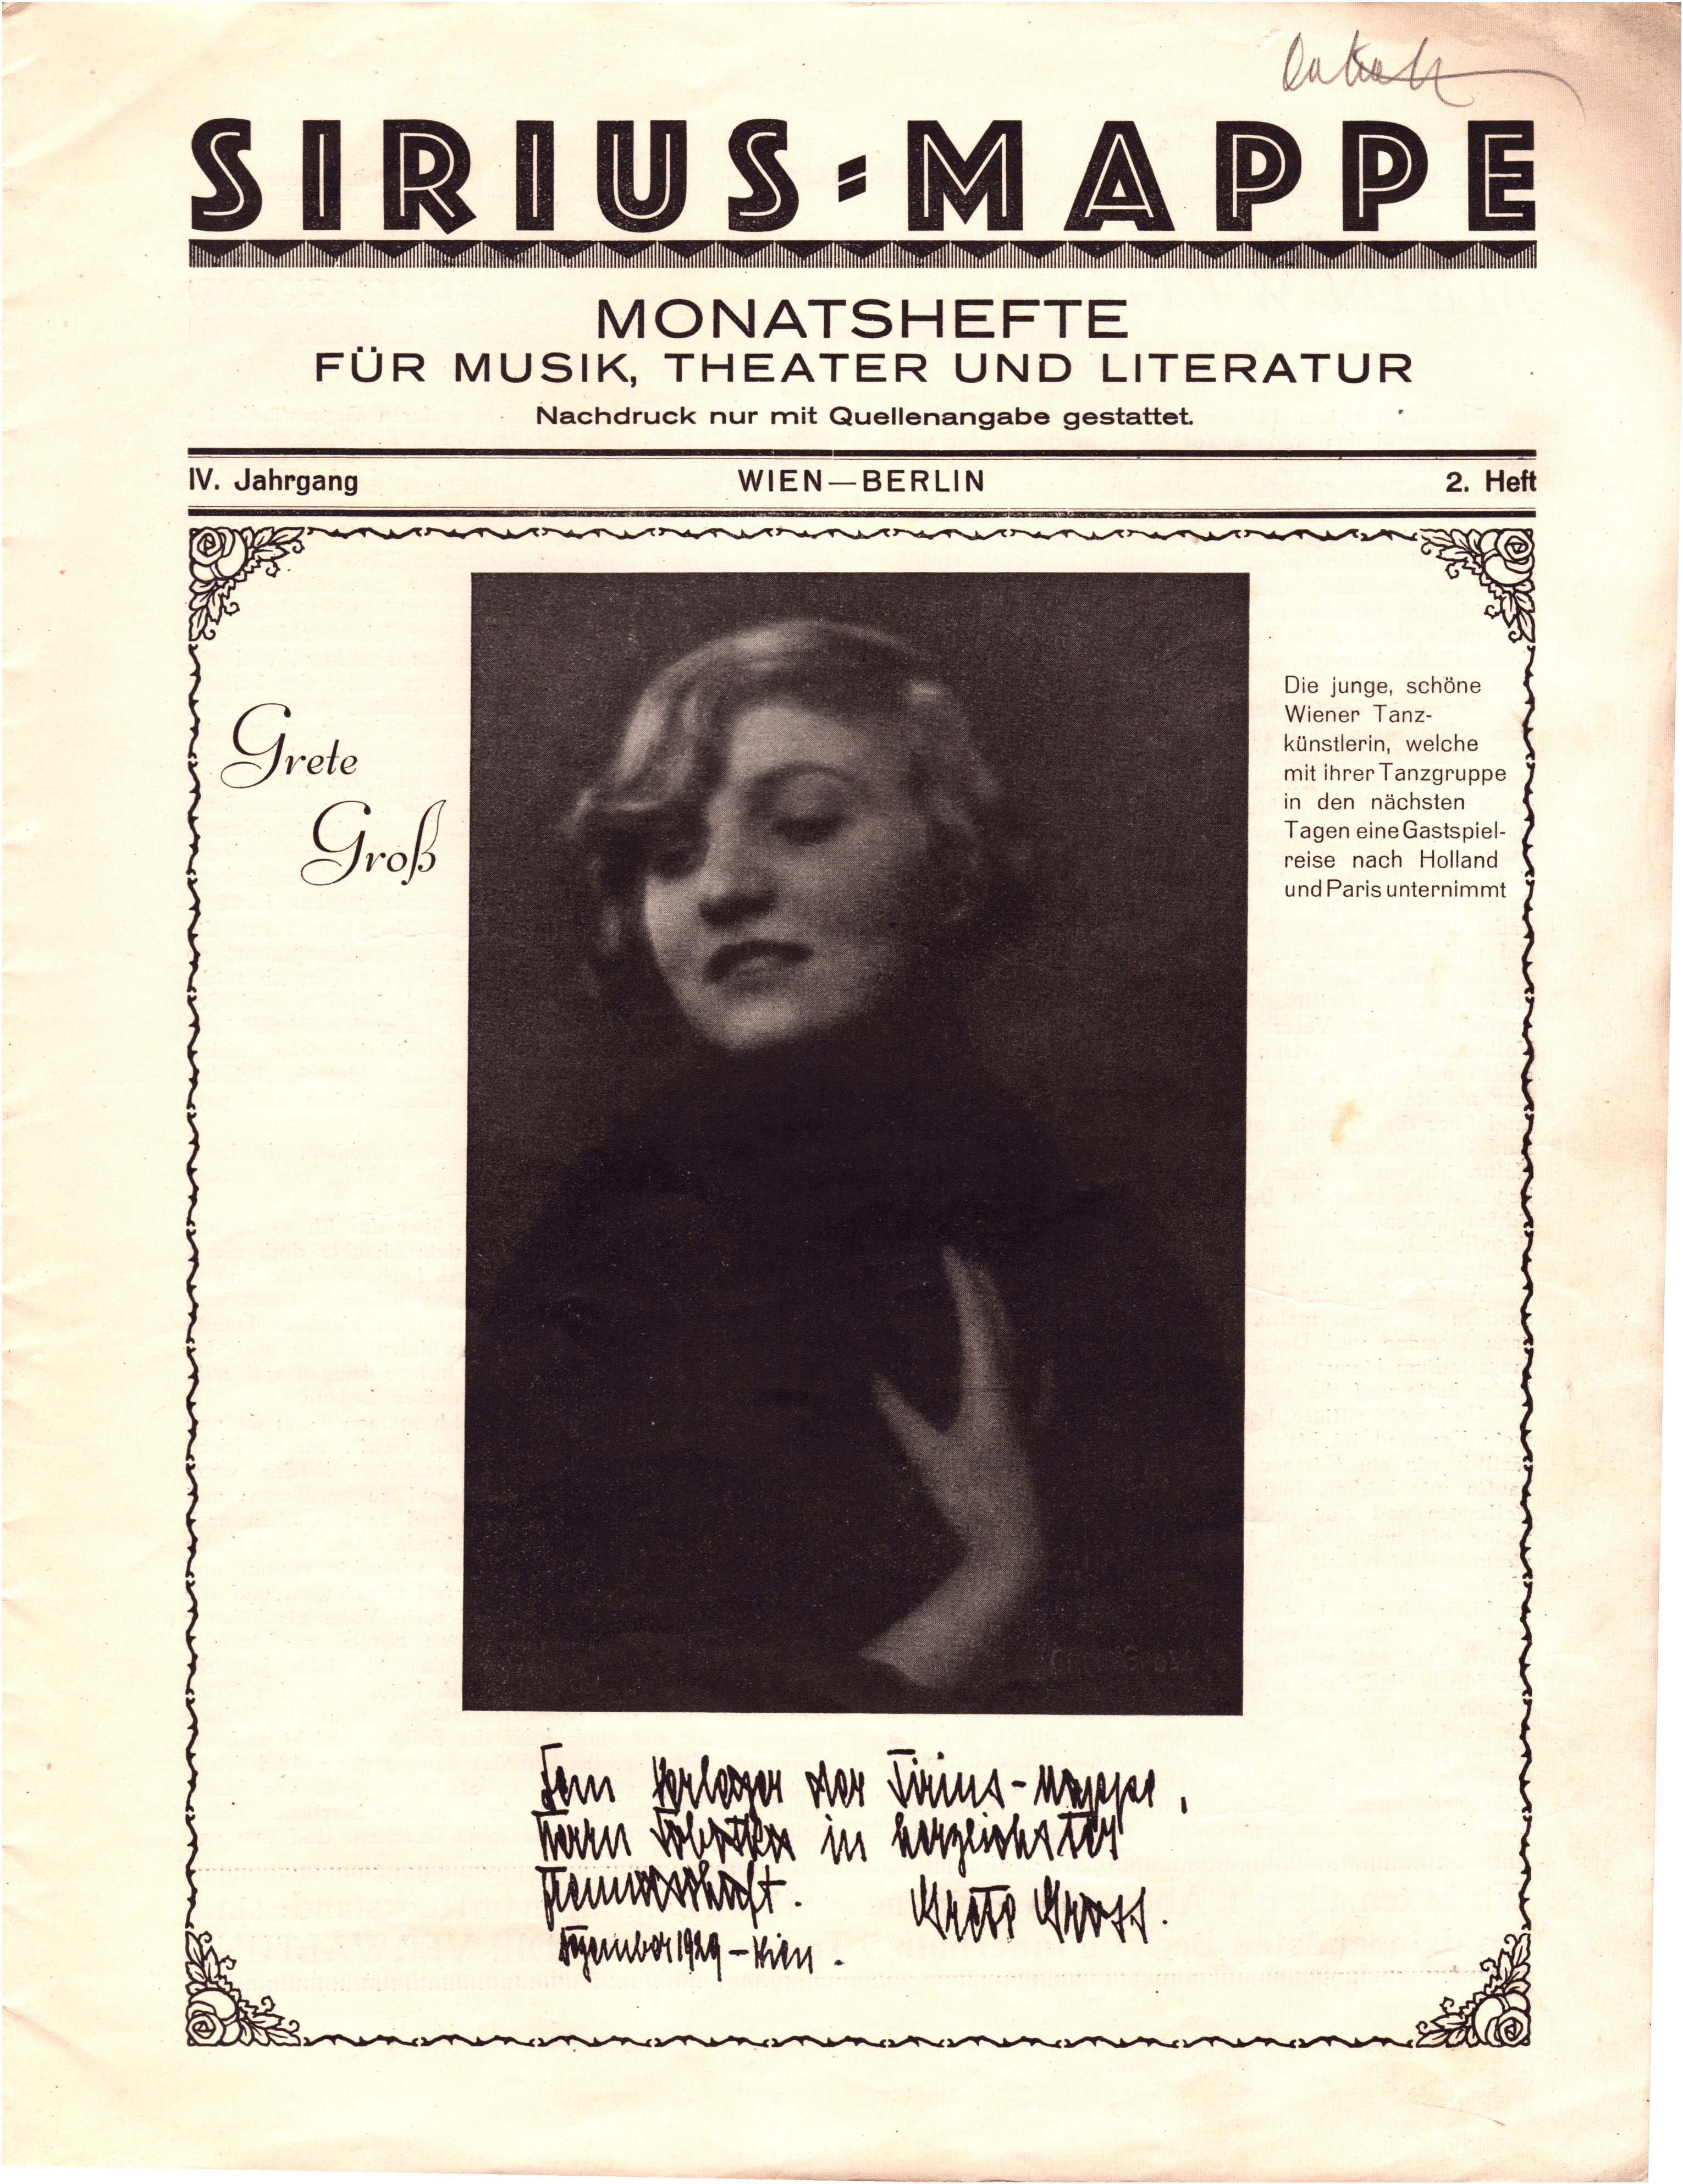 SIRIUS-MAPPE
MONATSHEFTE
FÜR MUSIK, THEATER UND LITERATUR
Nachdruck nur mit Quellenangabe gestattet.
IV. Jahrgang WIEN—BERLIN 2. Heft
Grete
Groß
Die junge, schöne
Wiener Tanz-
künstlerin, welche
mit ihrer Tanzgruppe
in den nächsten
Tagen eine Gastspiel-
reise nach Holland
und Paris unternimmt
Dem Verleger der Sirius-Mappe,
Herrn in herzlichster
Freundschaft. Grete Gross.
Dezember 1929 - Wien.